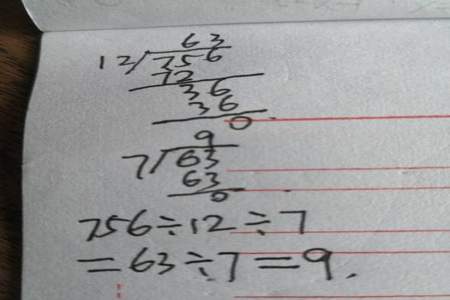 63
12/756
72
36
36
0
9
7/63
63
0
756÷12÷7
=63÷7=9.